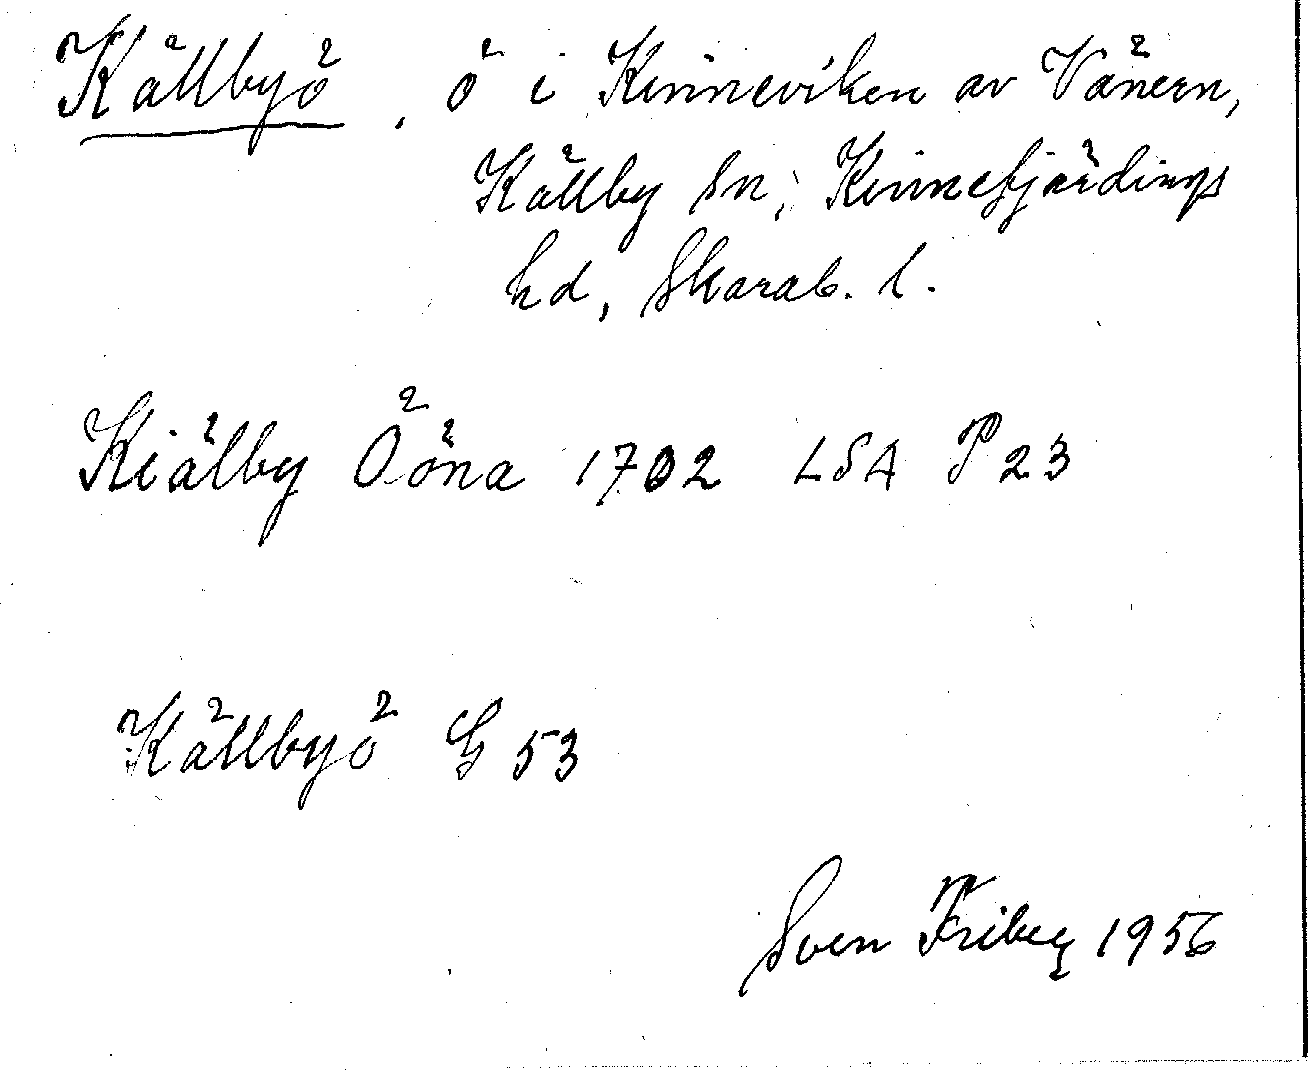 Källbyö, ö i Kinneviken av Vänern,
Källby sn, Kinnefjärdings
hd, Skarab. l.
Kiälby Ööna 1702 LSA P23
Källbyö G 53
Sven Friberg 1956